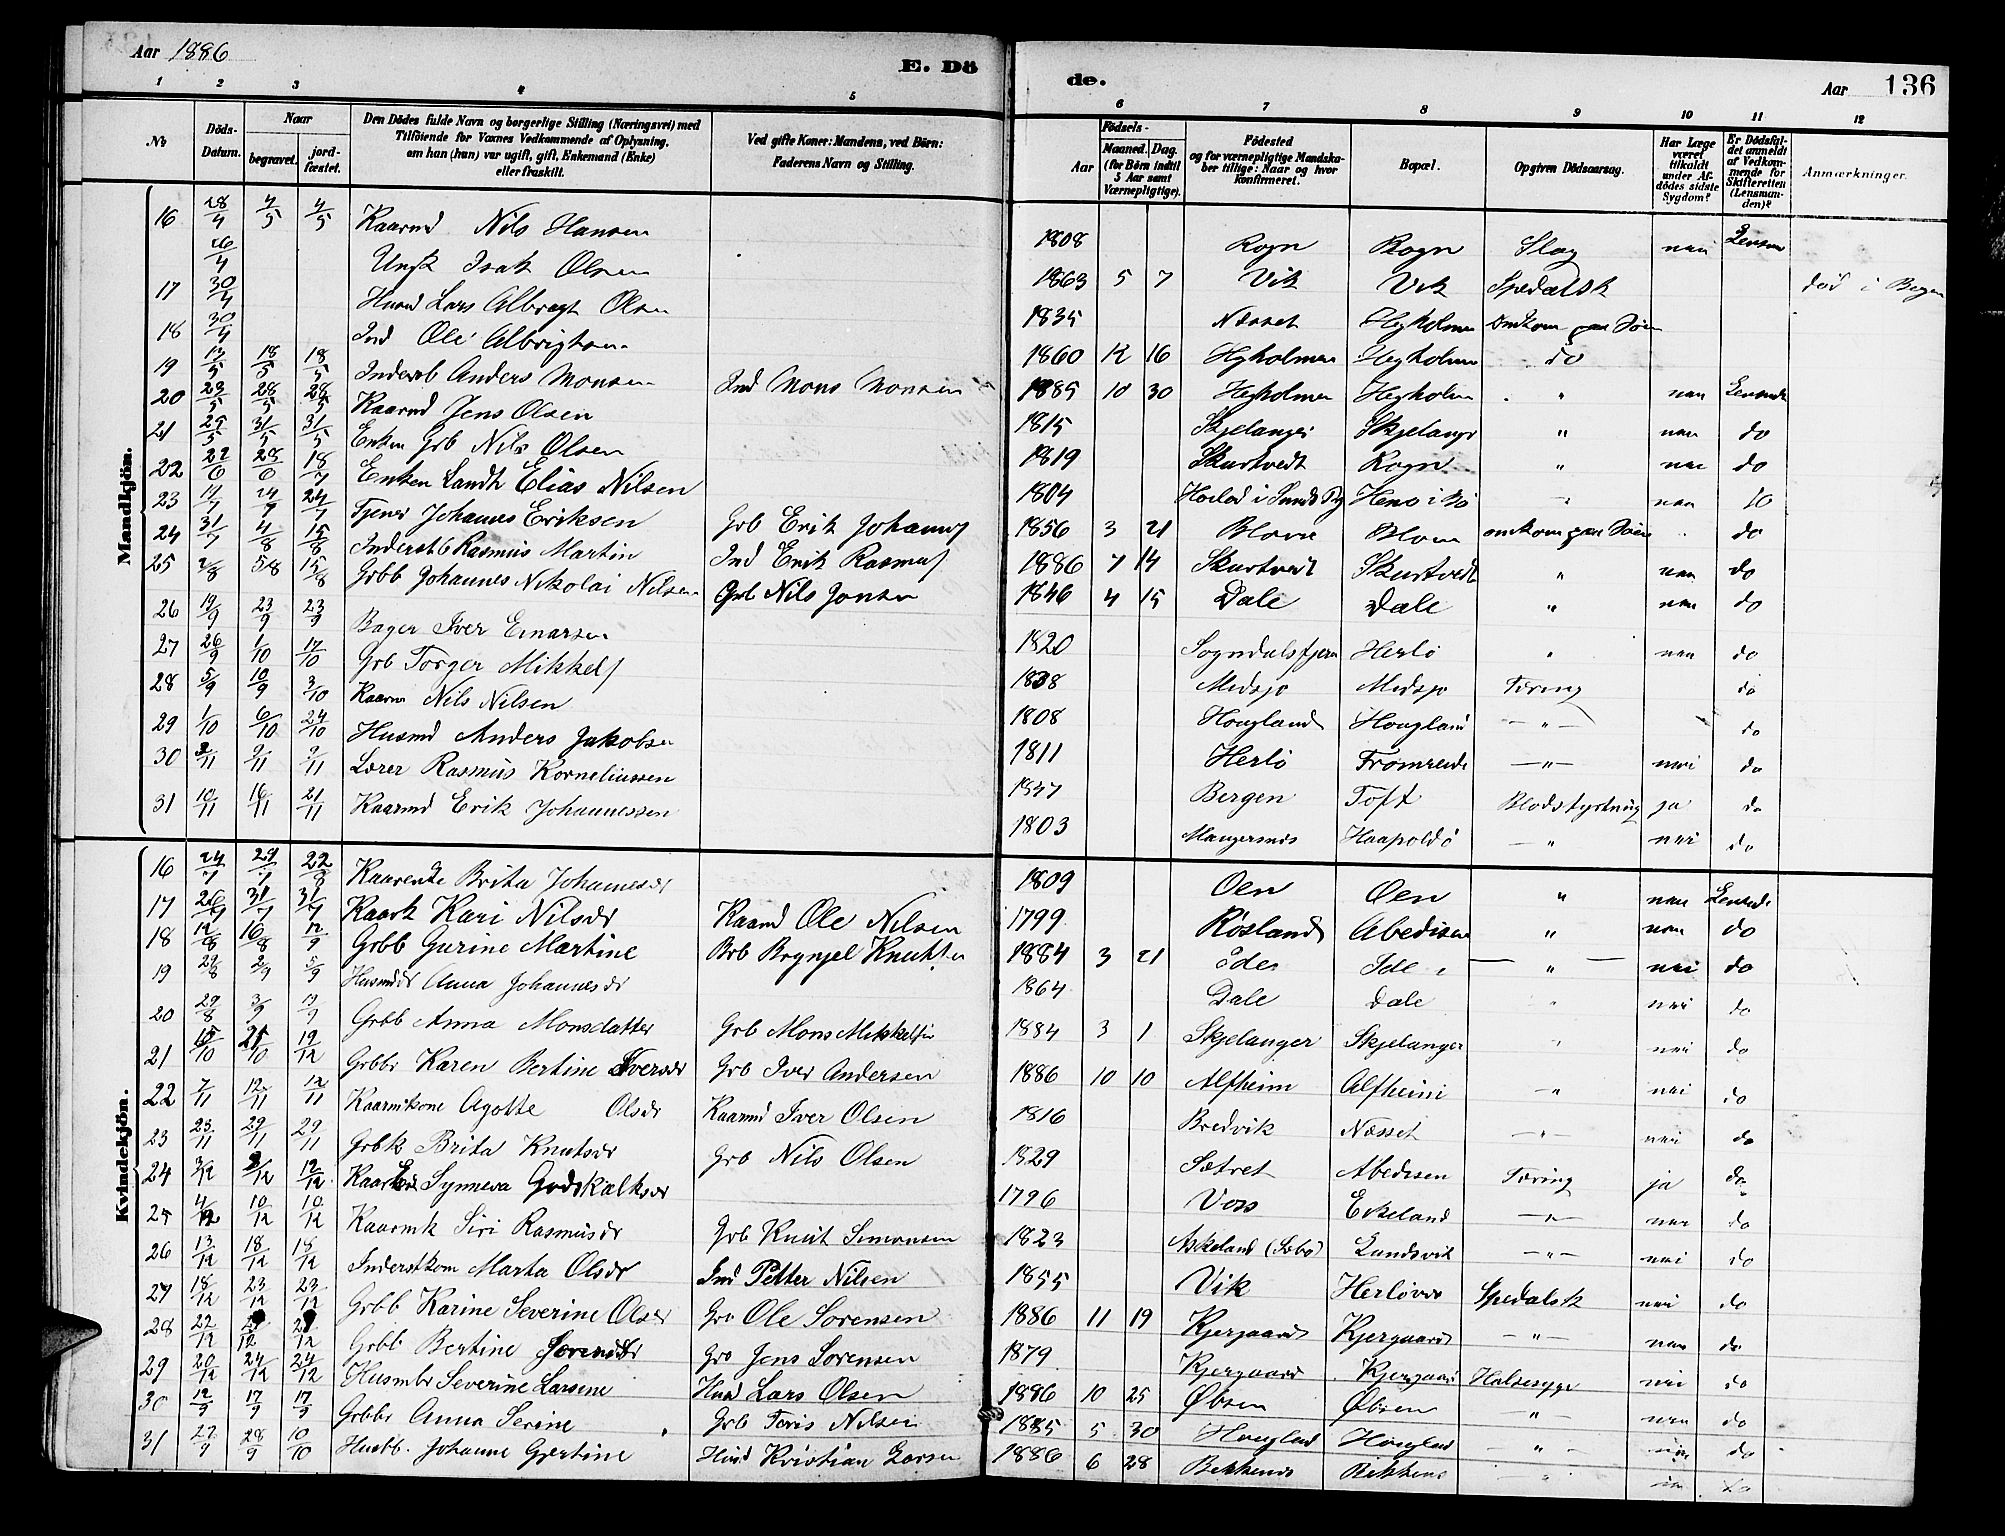 Aar 1886
E. Dö
de.
Aar
136
1 2 3 4 5 6 7 8 9 10 11 12
No
Döds-Datum.
Naar
begravet.
jordfæstet.
Den Dödes fulde Navn og borgerlige Stilling (Næringsvei) med
Tilföiende for Voxnes Vedkommende af Oplysning,
om han (hun) var ugift, gift, Enkemand (Enke)
eller fraskilt.
Ved gifte Koner: Mandens, ved Börn:
Faderens Navn og Stilling.
Födsels-
Aar
Maaned. Dag.
(for Börn indtil
5 Aar samt
Værnepligtige).
Födested
og for værnepligtige Mandska-
ber tillige: Naar og hvor
konfirmeret.
Bopæl.
Opgiven Dödsaarsag.
Har Læge
været
tilkaldt
under Af-
dödes sidste
Sygdom?
Er Dödsfal-
det anmeldt
af Vedkom-
mende for
Skifteretten
(Lensman-
den)?
Anmærkninger.
Mandkjön.
16 28/4 4/5 4/5 Kaarmd Nils Hansen 1808 Rogn Rogn Slag nei
26/4 Ungk Isak Olsen 1863 5 7 Vik Vik Spedalsk død i Bergen
17 30/4 Husmd Lars Albregt Olsen 1835 Næsset Hegholmen omkom paa Søen
18 30/4 Ind Ole Albrigtsen 1860 12 16 Hegholmen Hegholmen do
19 13/5 18/5 18/5 Inderstb Anders Monsen Ind Mons Monsen 1885 10 30 Hegholmen Hegholmen " nei
20 23/5 28/5 28/5 Kaarmd Jens Olsen 1815 Skjelanger Skjelanger " nei do
21 25/5 31/5 31/5 Enkem Grb Nils Olsen 1819 Skurtvedt Rogn " nei do
22 22/6 28/6 18/7 Enkem Elias Nilsen 1804 nei do
23 19/7 24/7 24/7 Tjener Johannes Eriksen Grb Erik Johannes 1856 3 21 Blom Blom omkom paa Søen do
24 31/7 4/8 15/8 Inderstb Rasmus Martin Ind Erik Rasmus 1886 7 14 Skurtvedt Skurtvedt " nei do
25 2/8 5/8 15/8 Grbb Johannes Nikolai Nilsen Grb Nils Jonsen 1846 4 15 Dale Dale " nei do
26 19/9 23/9 23/9 Bager Iver Einarsen 1820 Herlø " nei do
27 26/9 1/10 17/10 Grb Torger Mikkels 1838 Medsjø Medsjø Tæring do
28 5/9 10/9 3/10 Kaarm Nils Nilsen 1808 Hougland Hougland — " — do
29 1/10 6/10 24/10 Husmd Anders Jakobsen 1811 Herlø Fromreide — " — nei do
30 2/11 9/11 9/11 Lærer Rasmus Korneliussen 1847 Bergen Toft Blodstyrtning ja do
31 10/11 16/11 21/11 Kaarmd Erik Johannessen 1803 Mangersnes Haapoldø — " nei do
Kvindekjön.
16 24/7 29/7 22/8 Kaarenke Brita Johannesdr 1809 Oen Oen " nei
17 26/7 31/7 31/7 Kaark Kari Nilsdr Kaarmd Ole Nilsen 1799 Røsland Abedisen " nei do
18 12/8 16/8 12/9 Grbb Gurine Martine Grb Brynjel Knutsen 1884 3 21 Ide Ide — " — nei do
19 29/8 2/9 5/9 Husmdr Anna Johannesdr 1864 Dale Dale " nei do
20 29/8 3/9 13/9 Grbb Anna Monsdatter Grb Mons Mikkelsen 1884 3 1 Skjelanger Skjelanger " nei do
21 15/10 21/10 19/12 Grbbr Karen Bertine Iversdr Grb Iver Andersen 1886 10 10 Alfheim Alfheim — " nei do
22 7/11 12/11 12/11 Kaarmkone Agotte Olsdr Kaarmd Iver Olsen 1816 Bredvik Næsset — " — nei do
23 23/11 29/11 29/11 Grbk Brita Knutsdr Grb Nils Olsen 1829 Sætret Abedisen Tæring ja do
24 3/12 8/12 12/12 Synneva Godskalksdr 1796 Voss Ekeland — " — nei do
25 4/12 10/12 10/12 Kaarmk Siri Rasmusdr Grb Knut Simonsen 1823 Askeland (Sæbø) Lundsvik — " — nei do
26 13/12 18/12 18/12 Inderstkom Marta Olsdr Ind Petter Nilsen 1855 Vik Herløver Spedalsk nei do
27 18/12 23/12 23/12 Grbb Karine Severine Olsdr Grb Ole Sørensen 1886 11 19 Kjergaard Kjergaard — " — nei do
28 22/12 Grbb Bertine Sørensdr Grb Jens Sørensen 1879 Kjergaard Kjergaard Halssyge nei do
29 20/12 24/12 24/12 Husmbr Severine Larsine Husmd Lars Olsen 1886 10 25 Øbsen Øbsen — " — nei do
30 12/9 17/9 17/9 Grbbr Anna Serine Grb Toris Nilsen 1885 5 30 Hougland Hougland — " — nei do
31 22/9 28/9 10/10 Husbb. Johanne Gjertine Husmd Kristian Larsen 1886 6 28 Bekkenes Bekkenes " do